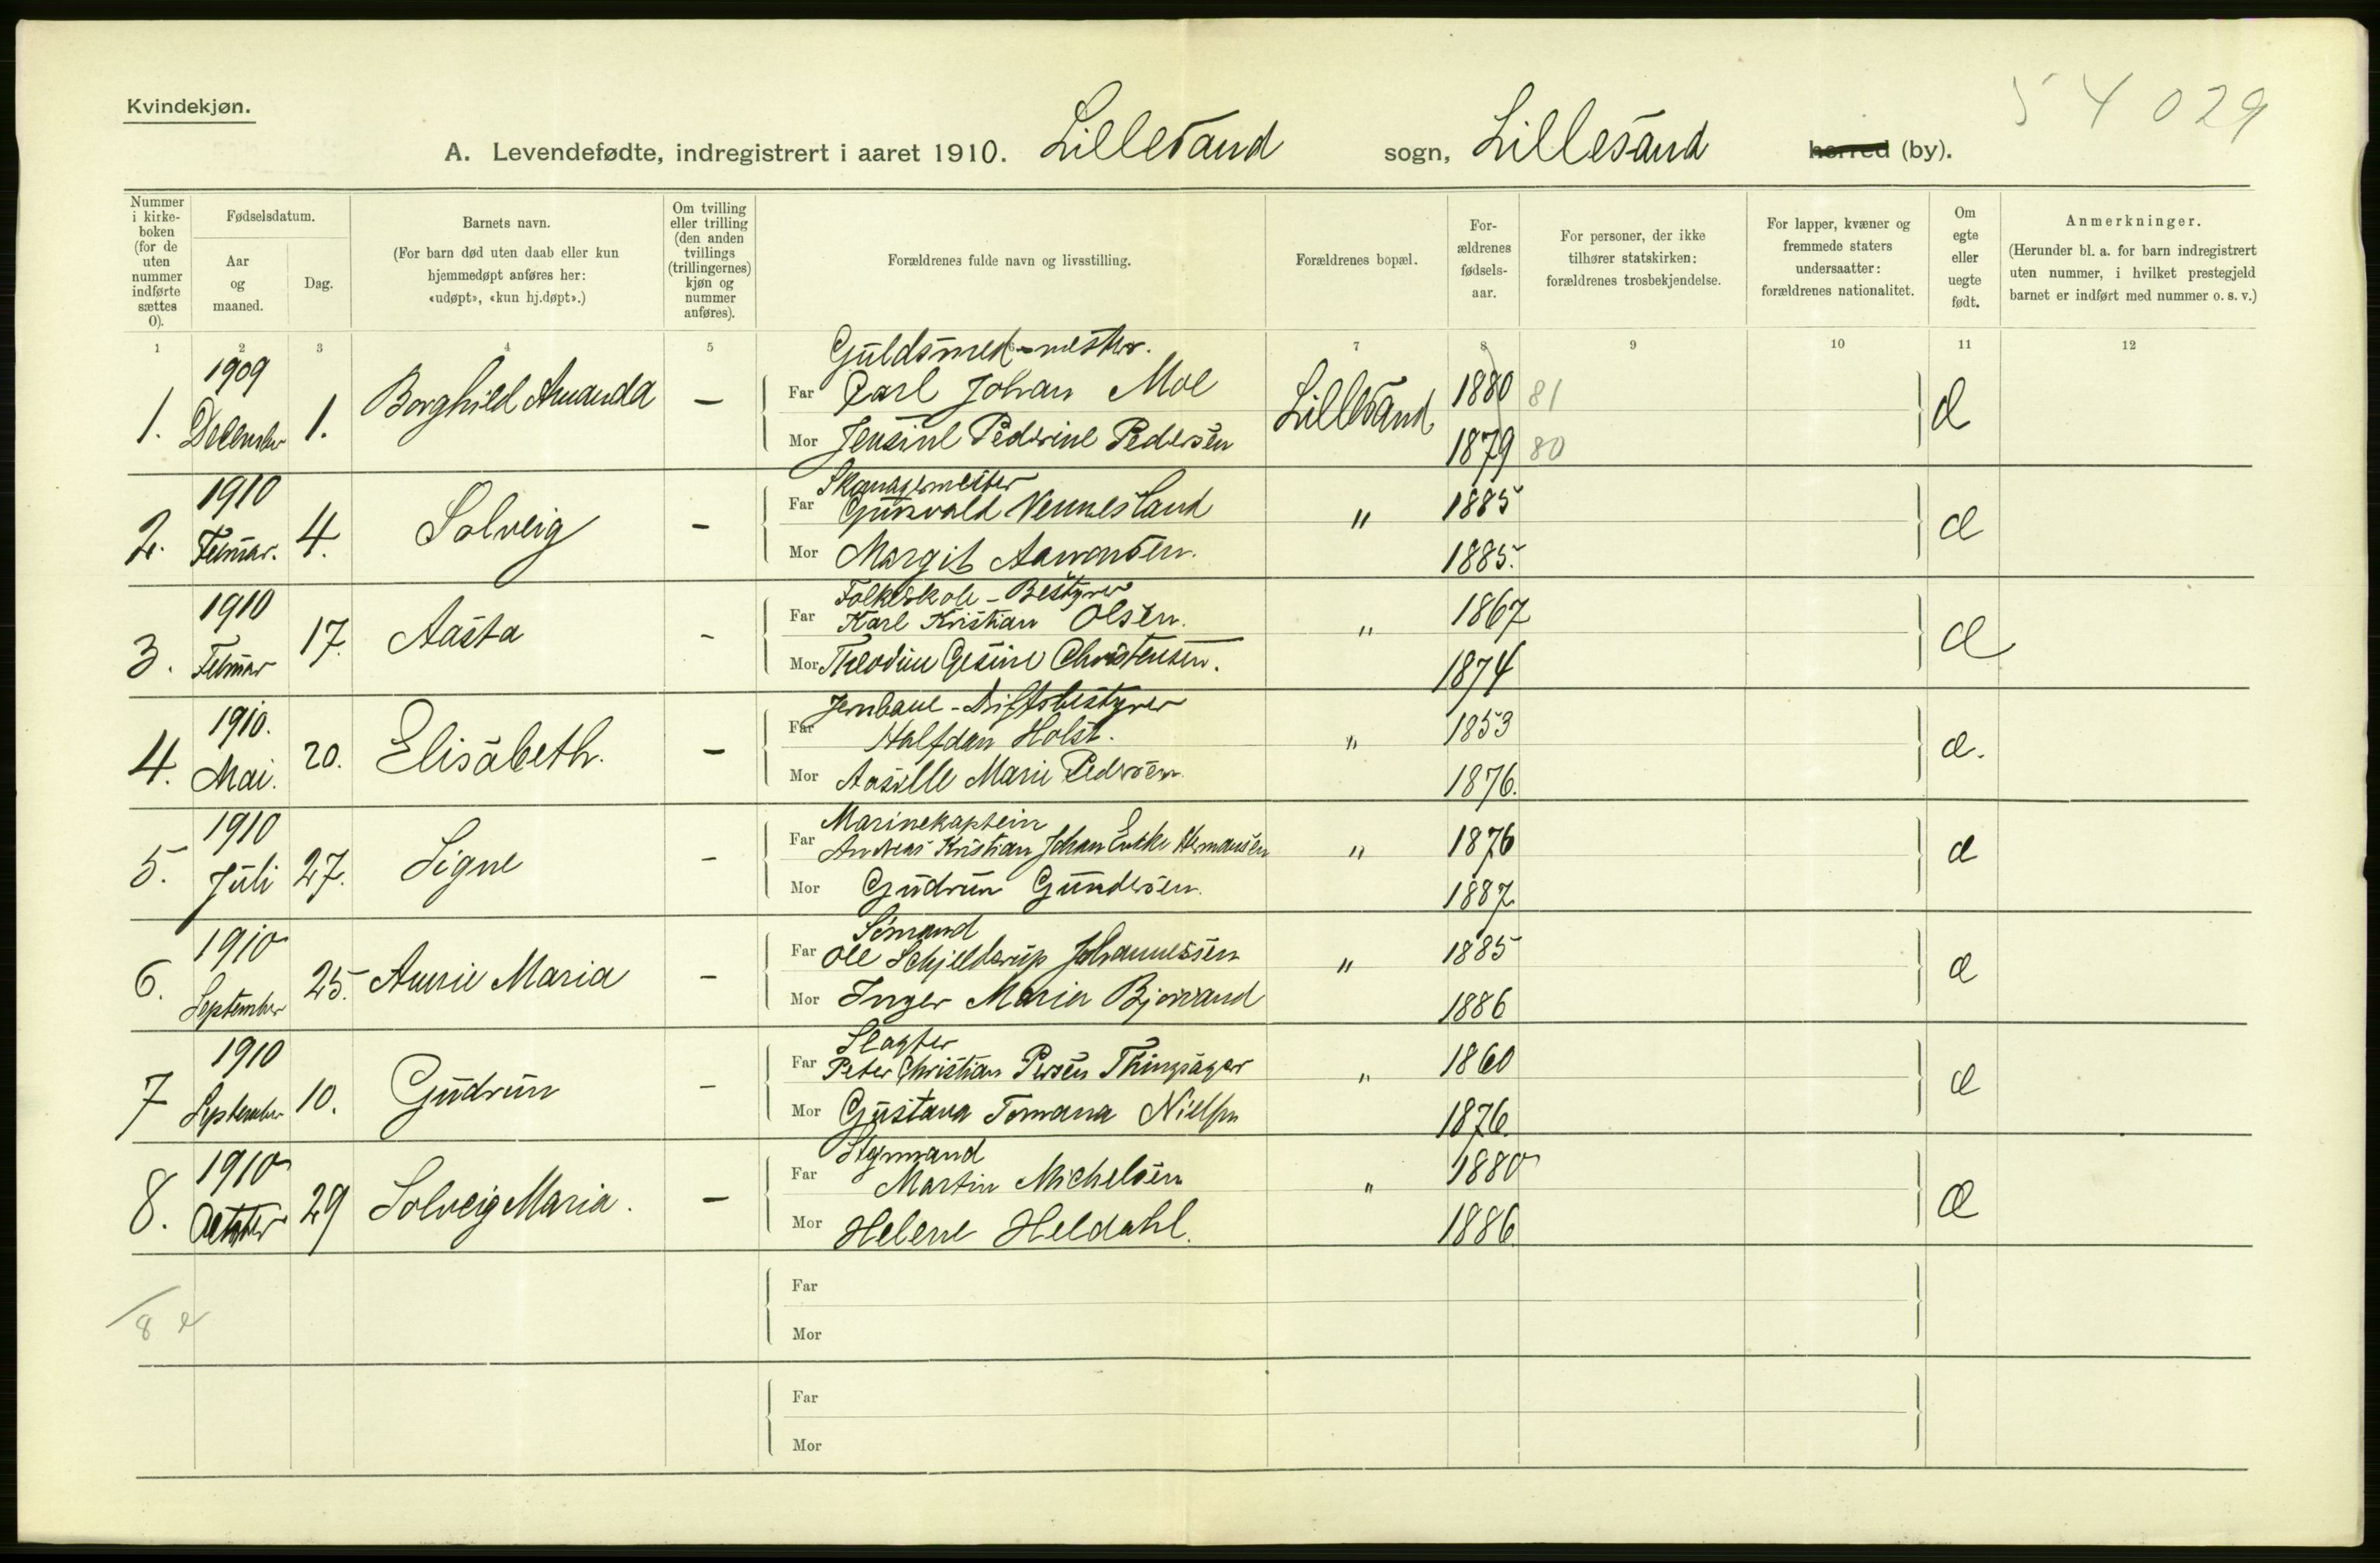 Kvindekjøn.
54029
A. Levendefødte, indregistrert i aaret 1910. Lillesand sogn, Lillesand herred (by).
Nummer i kirke-boken (for de uten nummer indførte sættes 0).
Fødselsdatum.
Aar og maaned.
Dag.
Barnets navn.
(For barn død uten daab eller kun hjemmedøpt anføres her: «udøpt», «kun hj.døpt».)
Om tvilling eller trilling (den anden tvillings (trillingernes) kjøn og nummer anføres).
Forældrenes fulde navn og livsstilling.
Forældrenes bopæl.
For-ældrenes fødsels-aar.
For personer, der ikke tilhører statskirken: forældrenes trosbekjendelse.
For lapper, kvæner og fremmede staters undersaatter: forældrenes nationalitet.
Om egte eller uegte født.
Anmerkninger.
(Herunder bl. a. for barn indregistrert uten nummer, i hvilket prestegjeld barnet er indført med nummer o. s. v.)
1 2 3 4 5 6 7 8 9 10 11 12
1909 Guldsmed-mester.
1. December 1. Borghild Amanda – Far Carl Johan Moe Lillesand 1880 81 e
Mor Jensine Pedrine Pedersen 1879 80
1910 Skomagermester
2. Februar. 4. Solveig – Far Gunvald Vennesland " 1885 e
Mor Margit Aamondsen. 1885.
1910 Folkeskole-Bestyrer
3. Februar 17. Aasta – Far Karl Kristian Olsen. " 1867 e
Mor Theodine Gesine Christensen. 1874
1910. Jernbane-Driftsbestyrer
4. Mai. 20. Elisabeth. – Far Halfdan Holst. " 1853 e.
Mor Aaselle Marie Pedersen. 1876.
1910 Marinekaptein
5. Juli 27. Signe – Far Andreas Kristian Johan Hermansen " 1876 e
Mor Gudrun Gundersen. 1887
1910 Sömand
6. September 25. Annie Maria – Far Ole Schjelderup Johannessen " 1885 e
Mor Inger Marie Bjorvand 1886
1910 Slagter
7 September 10. Gudrun – Far Peter Christian Persen Thingsager " 1860 e
Mor Gustava Tomana Nielsen 1876.
1910 Styrmand
8. October 29 Solveig Maria. – Far Martin Michelsen " 1880 e
Mor Helene Heldahl. 1886.
Far
8 e
Mor
Far
Mor